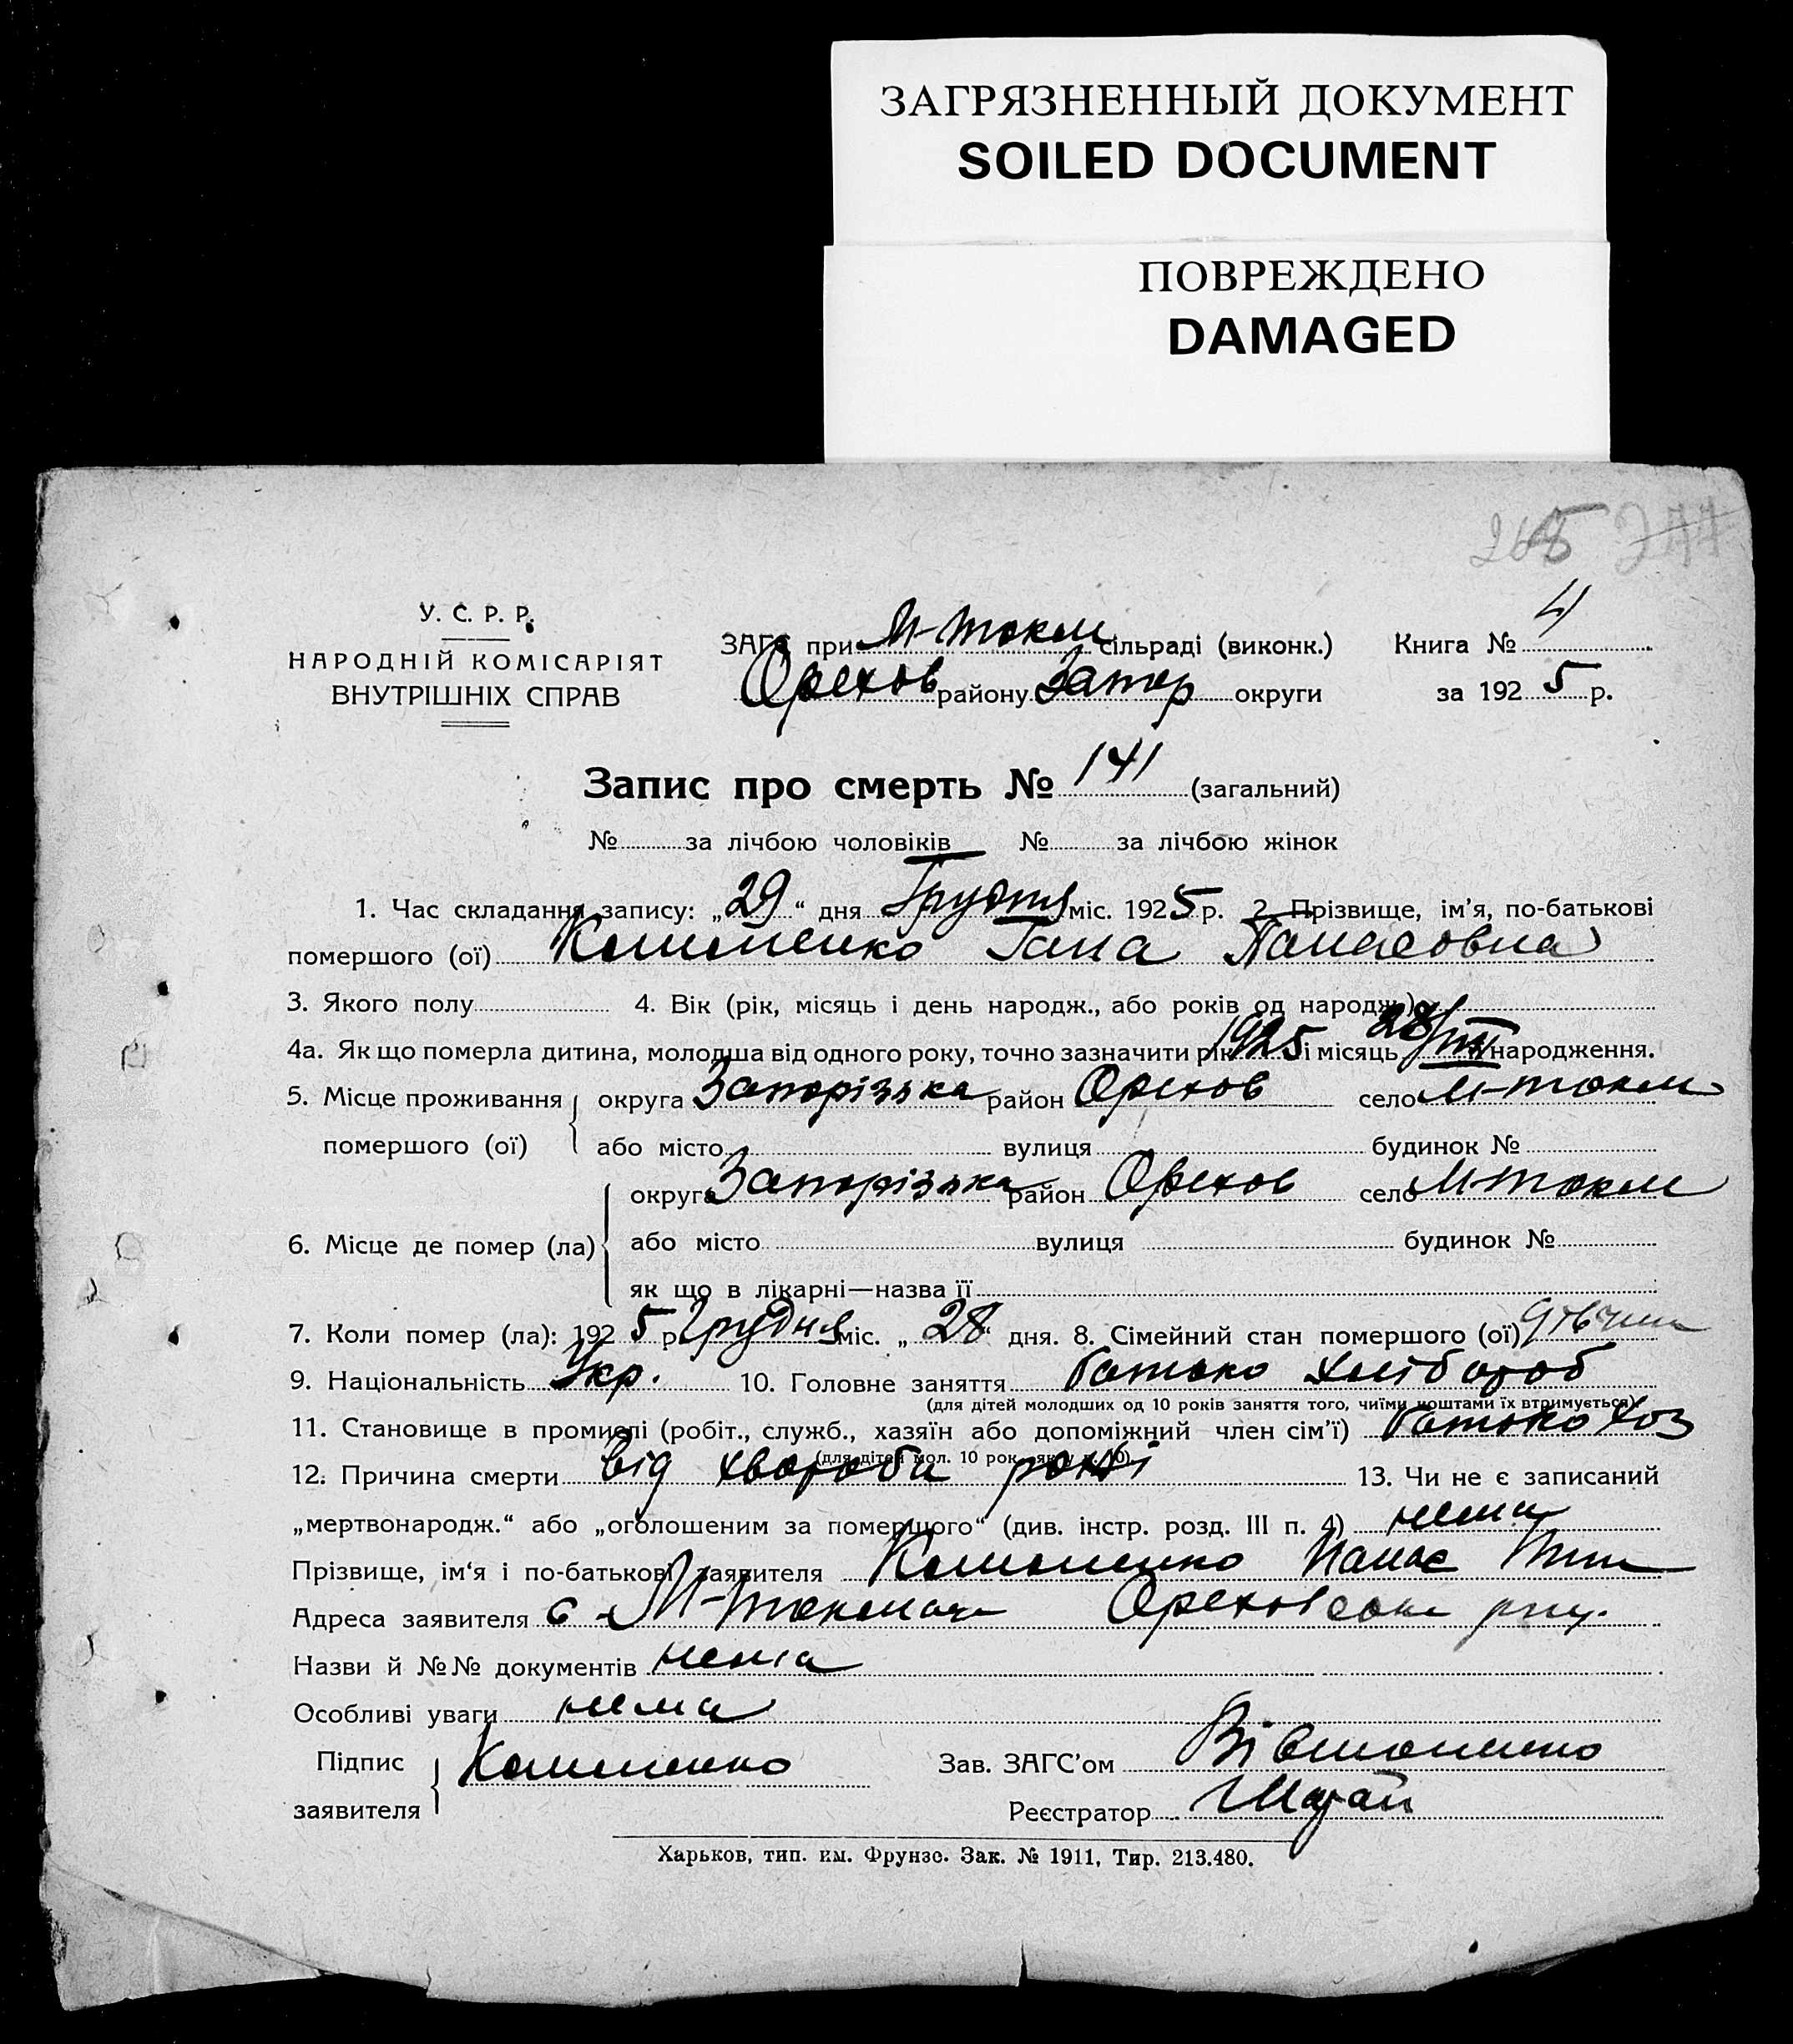 ЗАГРЯЗНЕННЫЙ ДОКУМЕНТ
SOILED DOCUMENT
ПОВРЕЖДЕНО
DAMAGED
265 244
У. С. Р. Р.
НАРОДНІЙ КОМІСАРІЯТ
ВНУТРІШНІХ СПРАВ
ЗАГС при М-Токм сільраді (виконк.) Книга № 4
Орехов району Запор округи за 1925 р.
Запис про смерть № 141 (загальний)
№ за лічбою чоловіків № за лічбою жінок
1. Час складання запису: „29“ дня Грудня міс. 1925 р. 2. Прізвище, ім’я, по-батькові
помершого (ої) Гана Панасовна
3. Якого полу 4. Вік (рік, місяць і день народж., або років од народж.)
4а. Як що померла дитина, молодша від одного року, точно зазначити рік 1925 і місяць 28/VIII народження.
5. Місце проживання округа Запорізька район Орехов село М-Токм
помершого (ої) або місто вулиця будинок №
округа Запорізька район Орехов село М-Токм
6. Місце де помер (ла) або місто вулиця будинок №
як що в лікарні—назва її
7. Коли помер (ла): 1925 р Грудня міс. „28“ дня. 8. Сімейний стан помершого (ої)
9. Національність Укр. 10. Головне заняття батько хлібороб
(для дітей молодших од 10 років заняття того, чиїми коштами їх втримується)
11. Становище в промислі (робіт., служб., хазяїн або допоміжний член сім’ї) батько хоз
(для дітей мол. 10 рок. як у п. 10)
12. Причина смерти від хвороби 13. Чи не є записаний
„мертвонародж.“ або „оголошеним за помершого“ (див. інстр. розд. III п. 4) нема
Прізвище, ім‘я і по-батькові заявителя Панас
Адреса заявителя с М-Токмачк
Назви й №№ документів нема
Особливі уваги нема
Підпис
заявителя
Зав. ЗАГС’ом
Реєстратор
Харьков, тип. им. Фрунзе. Зак. № 1911, Тир. 213.480.